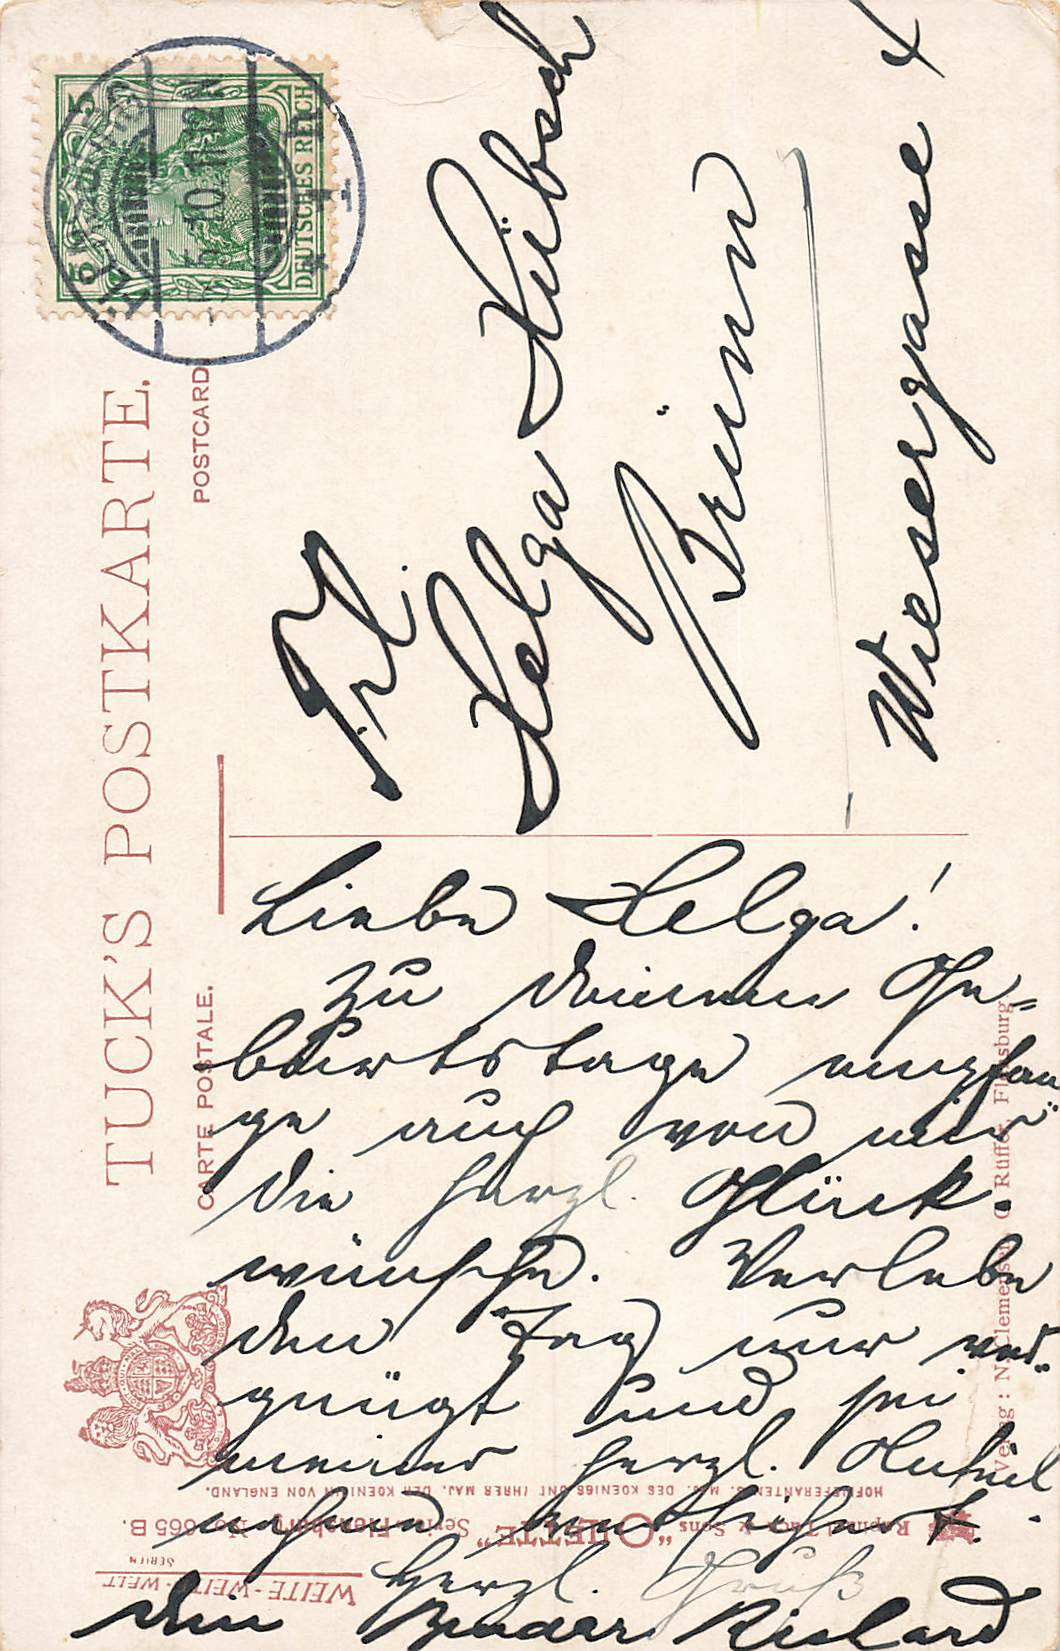 TUCK'S POSTKARTE.
CARTE POSTALE.
POSTCARD.
DEUTSCHES REICH
5 5
Frl.
Helga Hübsch
Brünn
Wiesergasse 4
Liebe Helga!
Zu deinem Ge-
burtstage empfan
ge auch von mir
die herzl. Glück-
wünsche. Verlebe
den Tag nur ver-
gnügt und sei
meiner herzl. Anteil
nahme versichert.
Herzl. Gruß
dein Bruder Richard
Verlag: N. Clemensen, C. Rüffer, Flensburg
HOFLIEFERANTEN S. MAJ. DES KOENIGS UND IHRER MAJ. DER KOENIGIN VON ENGLAND.
Raphael Tuck & Sons "OILETTE" Serie Flensburg No. 665 B.
WEITE-WEITE-WELT
SERIEN